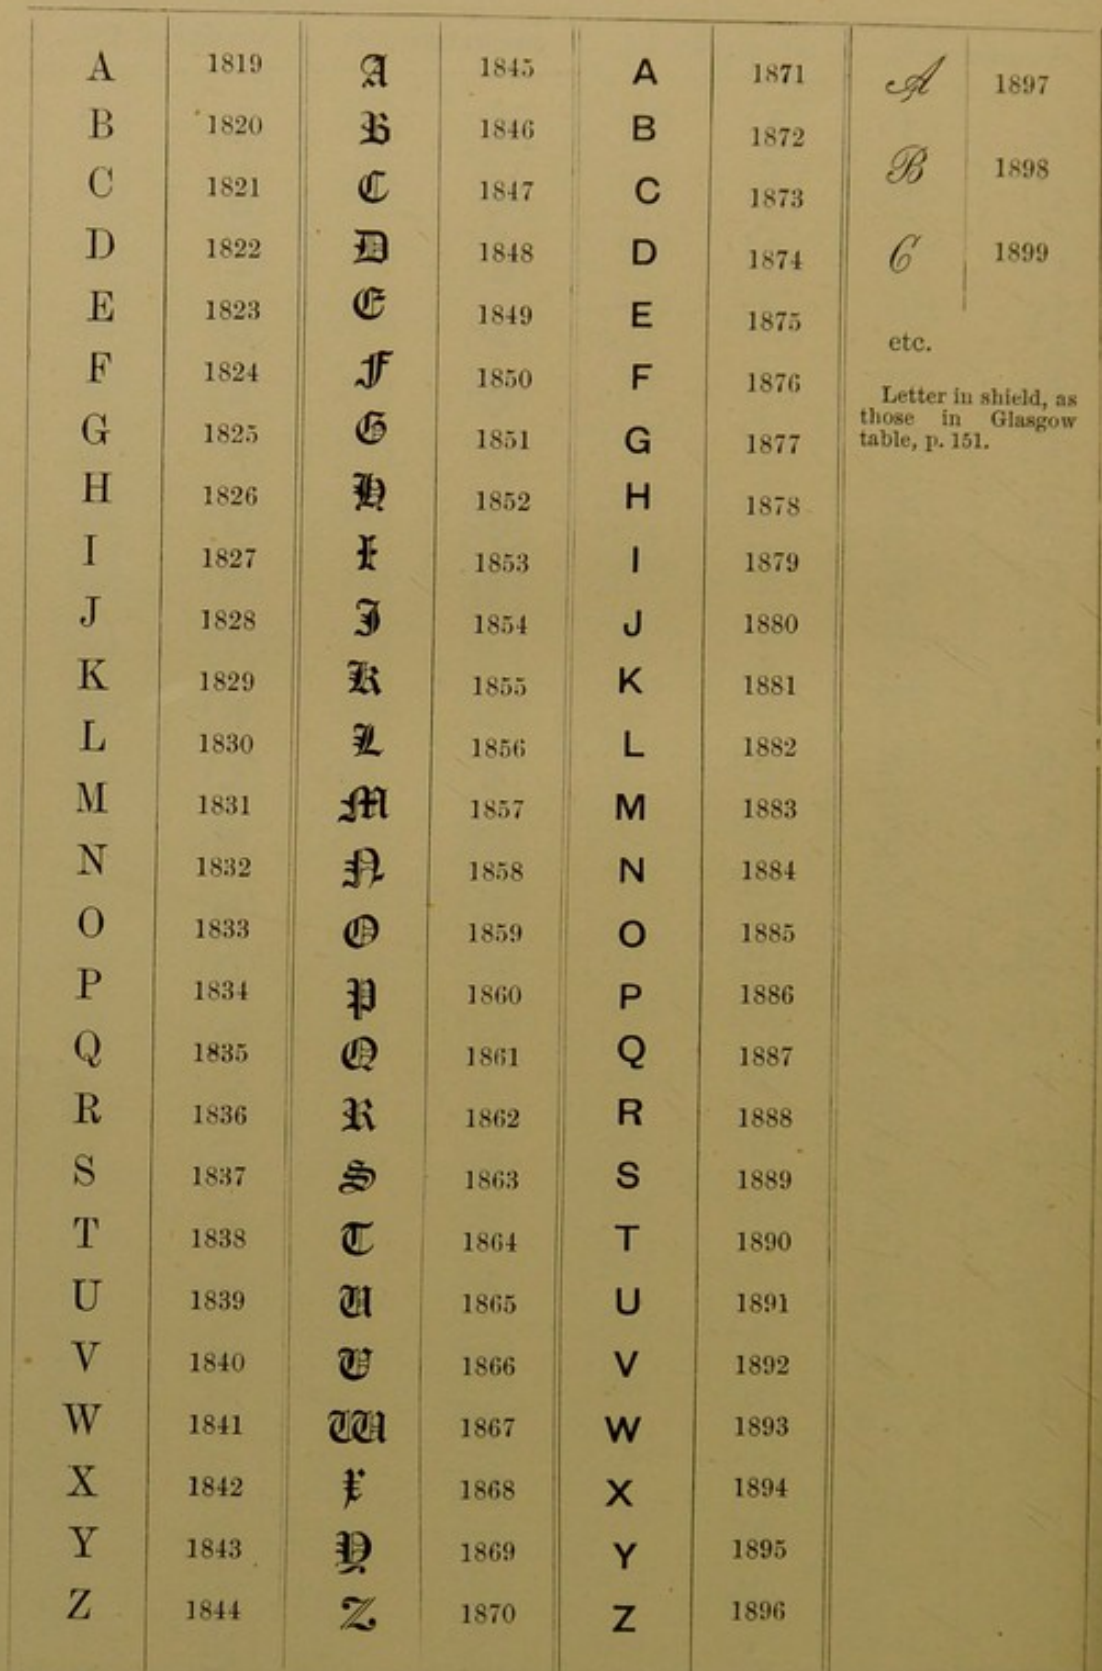 A 1819 A 1845 A 1871 A 1897
B 1820 B 1846 B 1872 B 1898
C 1821 C 1847 C 1873 C 1899
D 1822 D 1848 D 1874 etc.
E 1823 E 1849 E 1875 Letter in shield, as
F 1824 F 1850 F 1876 those in Glasgow
G 1825 G 1851 G 1877 table, p. 151.
H 1826 H 1852 H 1878
I 1827 I 1853 I 1879
J 1828 J 1854 J 1880
K 1829 K 1855 K 1881
L 1830 L 1856 L 1882
M 1831 M 1857 M 1883
N 1832 N 1858 N 1884
O 1833 O 1859 O 1885
P 1834 P 1860 P 1886
Q 1835 Q 1861 Q 1887
R 1836 R 1862 R 1888
S 1837 S 1863 S 1889
T 1838 T 1864 T 1890
U 1839 U 1865 U 1891
V 1840 V 1866 V 1892
W 1841 W 1867 W 1893
X 1842 X 1868 X 1894
Y 1843 Y 1869 Y 1895
Z 1844 Z 1870 Z 1896